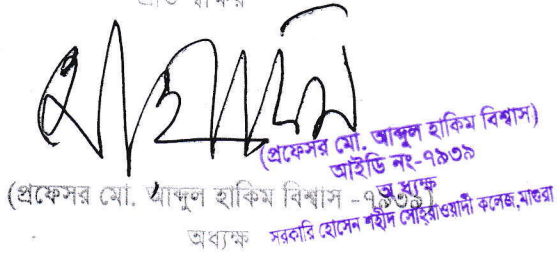 (প্রফেসর মো. আব্দুল হাকিম বিশ্বাস)
আইডি নং-৭৯৩৯
অধ্যক্ষ
সরকারি হোসেন শহীদ সোহরাওয়ার্দী কলেজ, মাগুরা
(প্রফেসর মো. আব্দুল হাকিম বিশ্বাস -৭৯৩৯)
অধ্যক্ষ